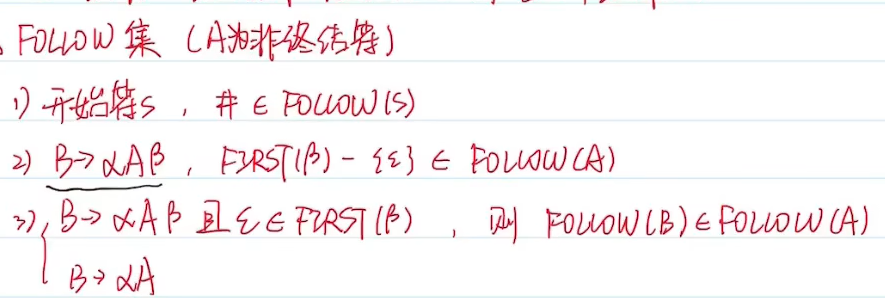 FOLLOW集 (A为非终结符)
1) 开始符S , # ∈ FOLLOW(S)
2) B→αAβ , FIRST(β) - {ε} ∈ FOLLOW(A)
3) { B→αAβ 且 ε ∈ FIRST(β) , 则 FOLLOW(B) ∈ FOLLOW(A)
B→αA